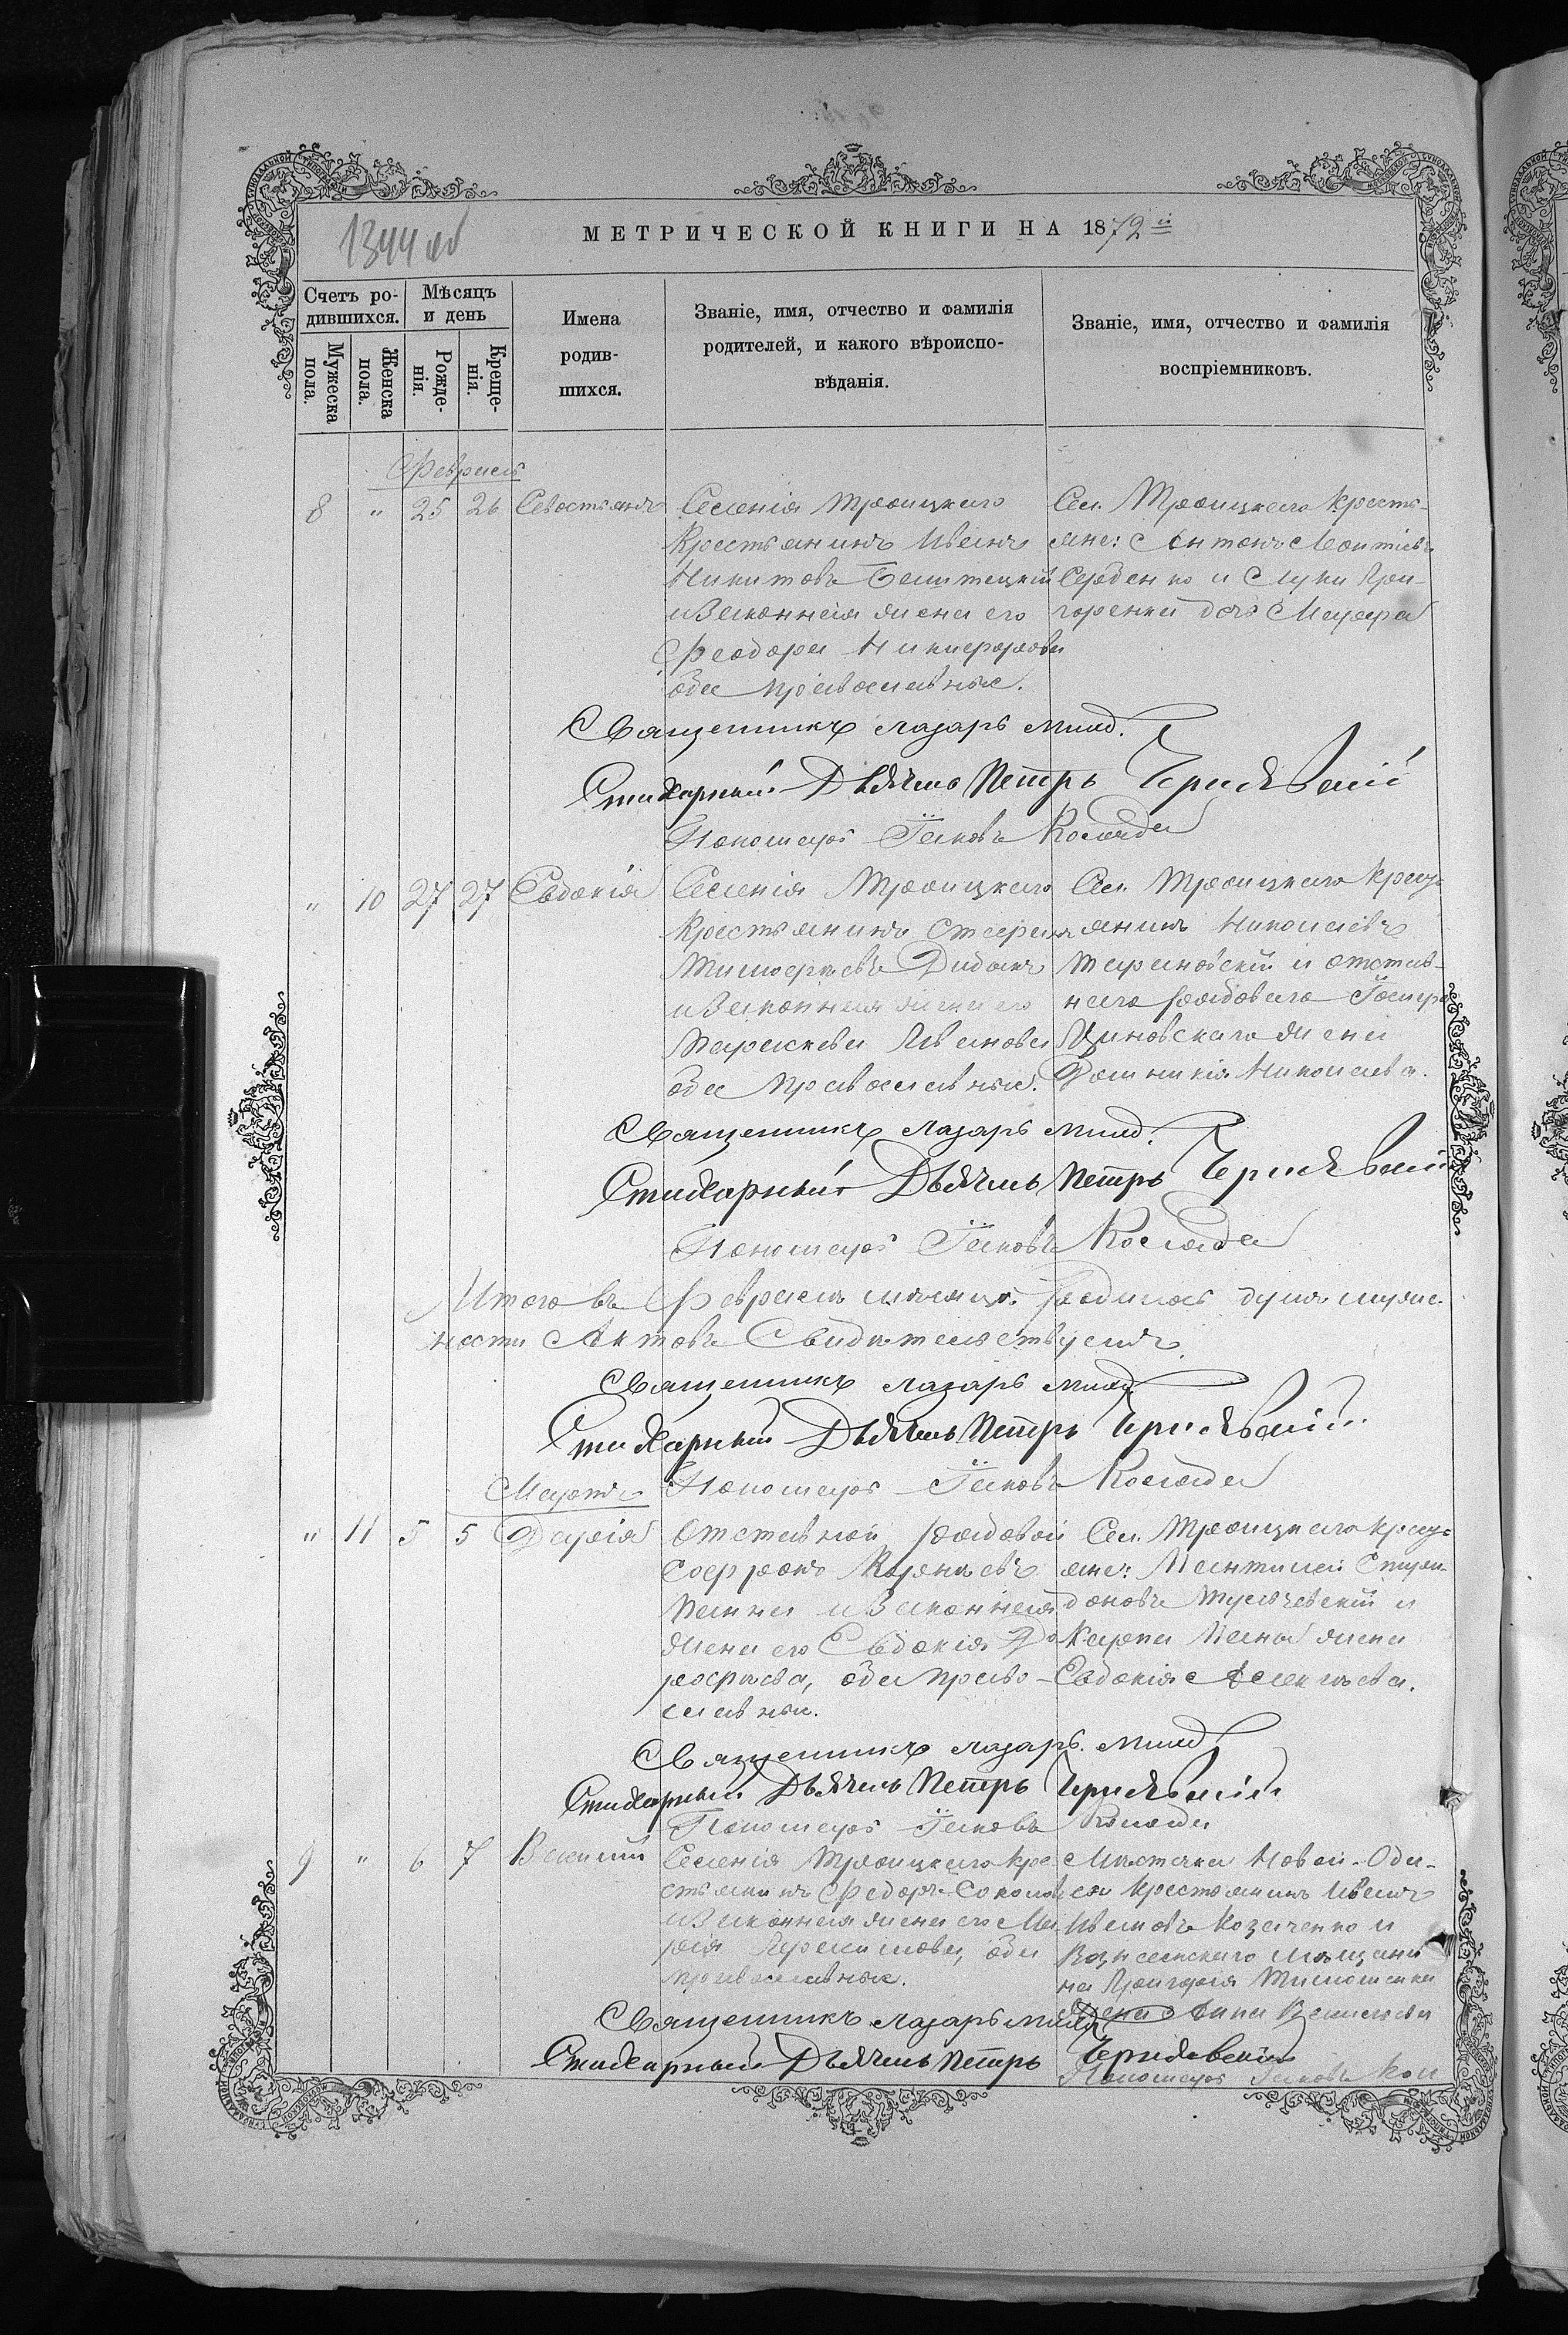 1344 об
МЕТРИЧЕСКОЙ КНИГИ НА 1872й
Счетъ ро-
дившихся.
Мѣсяцъ
и день
Имена
родив-
шихся.
Званіе, имя, отчество и фамилія
родителей, и какого вѣроиспо-
вѣданія.
Званіе, имя, отчество и фамилія
воспріемниковъ.
Мужеска
пола.
Женска
пола.
Рожде-
нія.
Креще-
нія.
Февраль
8 " 25 26 Севостьянъ
Селенія Троицкаго
Крестьянинъ Иванъ
Никитовъ
и Законная жена его
Феодора Никифорова
оба православные.
Сел. Троицкаго Кресть-
яне: Антонъ Леонтіевъ
Середенко и Луки Гри-
горенка дочь Мавра
Священникъ Лазарь
Стихарный Дьячекъ Петръ Чернявскій
Пономарь Іаковъ Коляда
" 10 27 27 Евдокія
Селенія Троицкаго
Крестьянинъ Стефанъ
Тимофеевъ Дидыкъ
и Законная жена его
Параскева Иванова
оба православные.
Сел. Троицкаго Крест-
янинъ Николаевъ
Тарановскій и отстав-
наго рядоваго
жена
Домникія Николаева.
Священникъ Лазарь
Стихарный Дьячекъ Петръ Чернявскій
Пономарь Іаковъ Коляда
Итого въ Февралѣ мѣсяцѣ родилось
ности Актовъ Свидѣтельствуемъ
Священникъ Лазарь
Стихарный Дьячекъ Петръ Чернявскій
Пономарь Іаковъ Коляда
Мартъ
" 11 5 5 Дарія
Отставной рядовой
Софронъ Корнѣевъ
и Законная
жена его Евдокія До-
рофеева, оба право-
славные.
Сел. Троицкаго Крест-
яне: Пантилей Спири-
доновъ и
Карпа жена
Евдокія Алексѣева.
Священникъ Лазарь
Стихарный Дьячекъ Петръ Чернявскій
Пономарь Іаковъ Коляда
9 " 6 7 Василій
Селенія Троицкаго Кре-
стьянинъ Федоръ Соколов
и Законная жена его Ма-
рія оба
православные.
Мѣстечка Новой-Оде-
сы Крестьянинъ Иванъ
Ивановъ Козаченко и
Вознесенскаго мѣщани-
на Григорія Тимошенка
жена Анна Васильева
Священникъ Лазарь
Стихарный Дьячекъ Петръ Чернявскій
Пономарь Іаковъ Кол